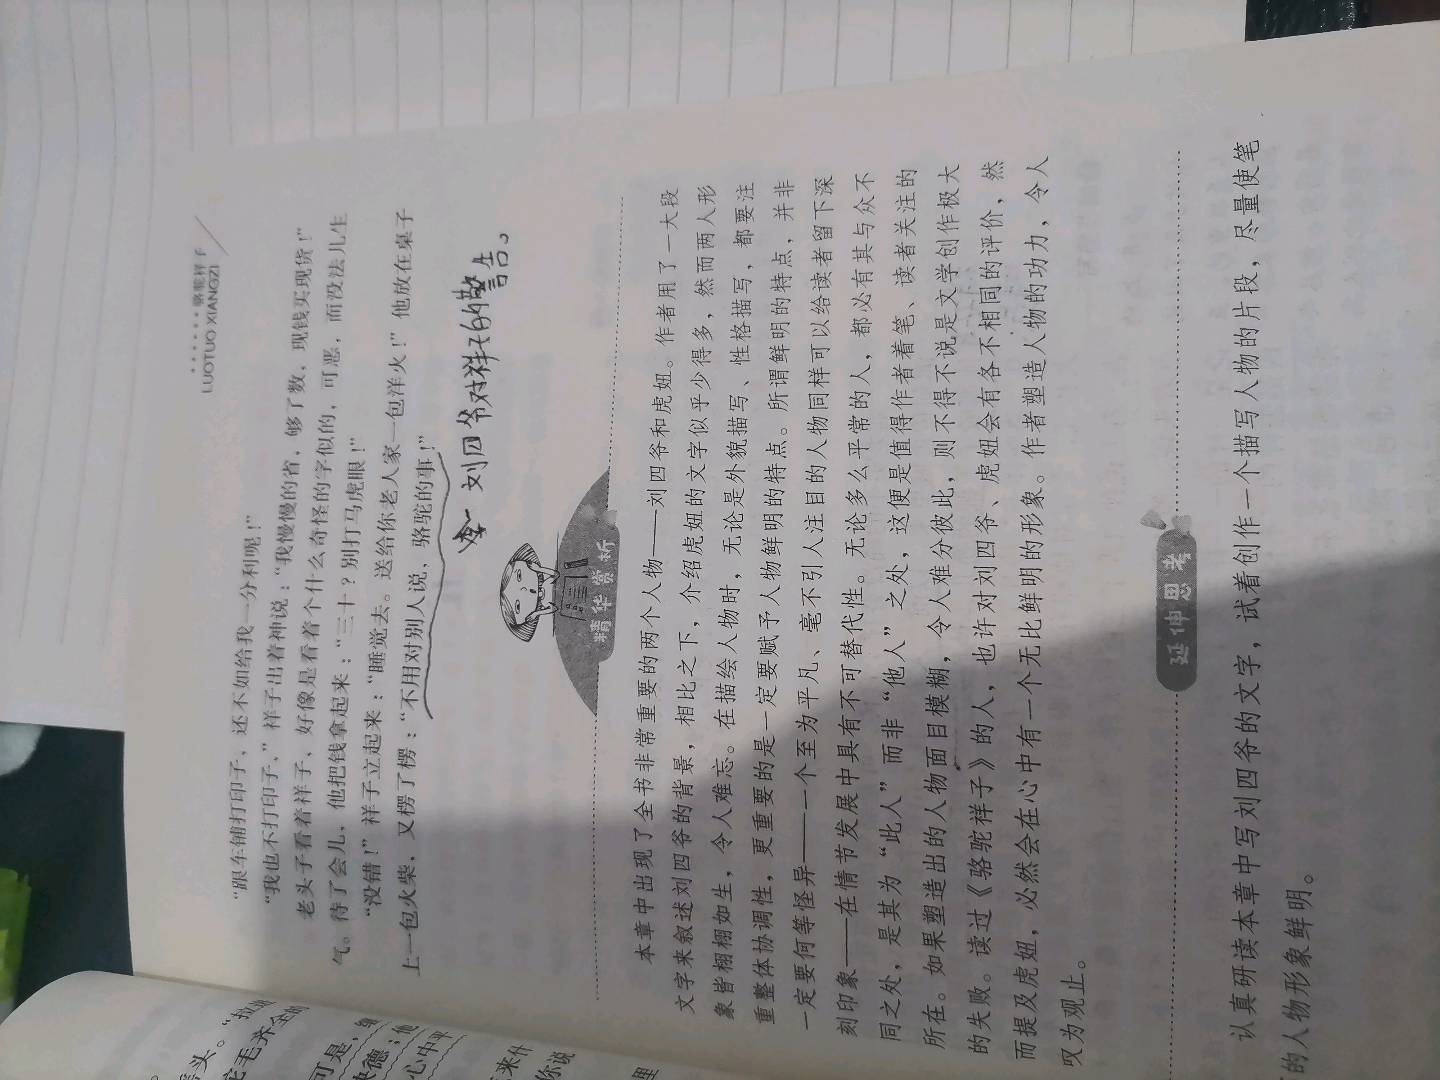 骆驼祥子
LUOTUO XIANGZI
“跟车铺打印子，还不如给我一分利呢！”
“我也不打印子，”祥子出着神说：“我慢慢的省，够了数，现钱买现货！”
老头子看着祥子，好像是看着个什么奇怪的字似的，可恶，而没法儿生
气。待了会儿，他把钱拿起来：“三十？别打马虎眼！”
“没错！”祥子立起来：“睡觉去。送给你老人家一包洋火！”他放在桌子
上一包火柴，又楞了楞：“不用对别人说，骆驼的事！”
刘四爷对祥子的警告。
精华赏析
本章中出现了全书非常重要的两个人物——刘四爷和虎妞。作者用了一大段
文字来叙述刘四爷的背景，相比之下，介绍虎妞的文字似乎少得多，然而两人形
象皆栩栩如生，令人难忘。在描绘人物时，无论是外貌描写、性格描写，都要注
重整体协调性，更重要的是一定要赋予人物鲜明的特点。所谓鲜明的特点，并非
一定要何等怪异——一个至为平凡、毫不引人注目的人物同样可以给读者留下深
刻印象——在情节发展中具有不可替代性。无论多么平常的人，都必有其与众不
同之处，是其为“此人”而非“他人”之处，这便是值得作者着笔、读者关注的
所在。如果塑造出的人物面目模糊，令人难分彼此，则不得不说是文学创作极大
的失败。读过《骆驼祥子》的人，也许对刘四爷、虎妞会有各不相同的评价，然
而提及虎妞，必然会在心中有一个无比鲜明的形象。作者塑造人物的功力，令人
叹为观止。
延伸思考
认真研读本章中写刘四爷的文字，试着创作一个描写人物的片段，尽量使笔
下的人物形象鲜明。
头。“拉
毛齐全的
可是，
德；他
心中平
来什
你说
里